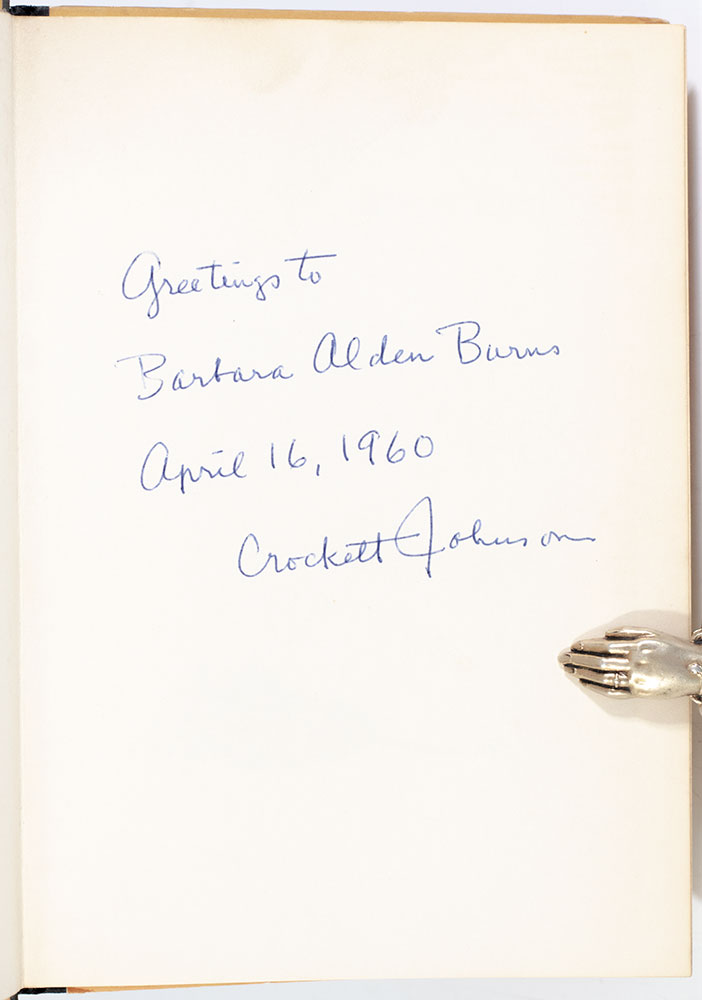 Greetings to
Barbara Alden Burns
April 16, 1960
Crockett Johnson